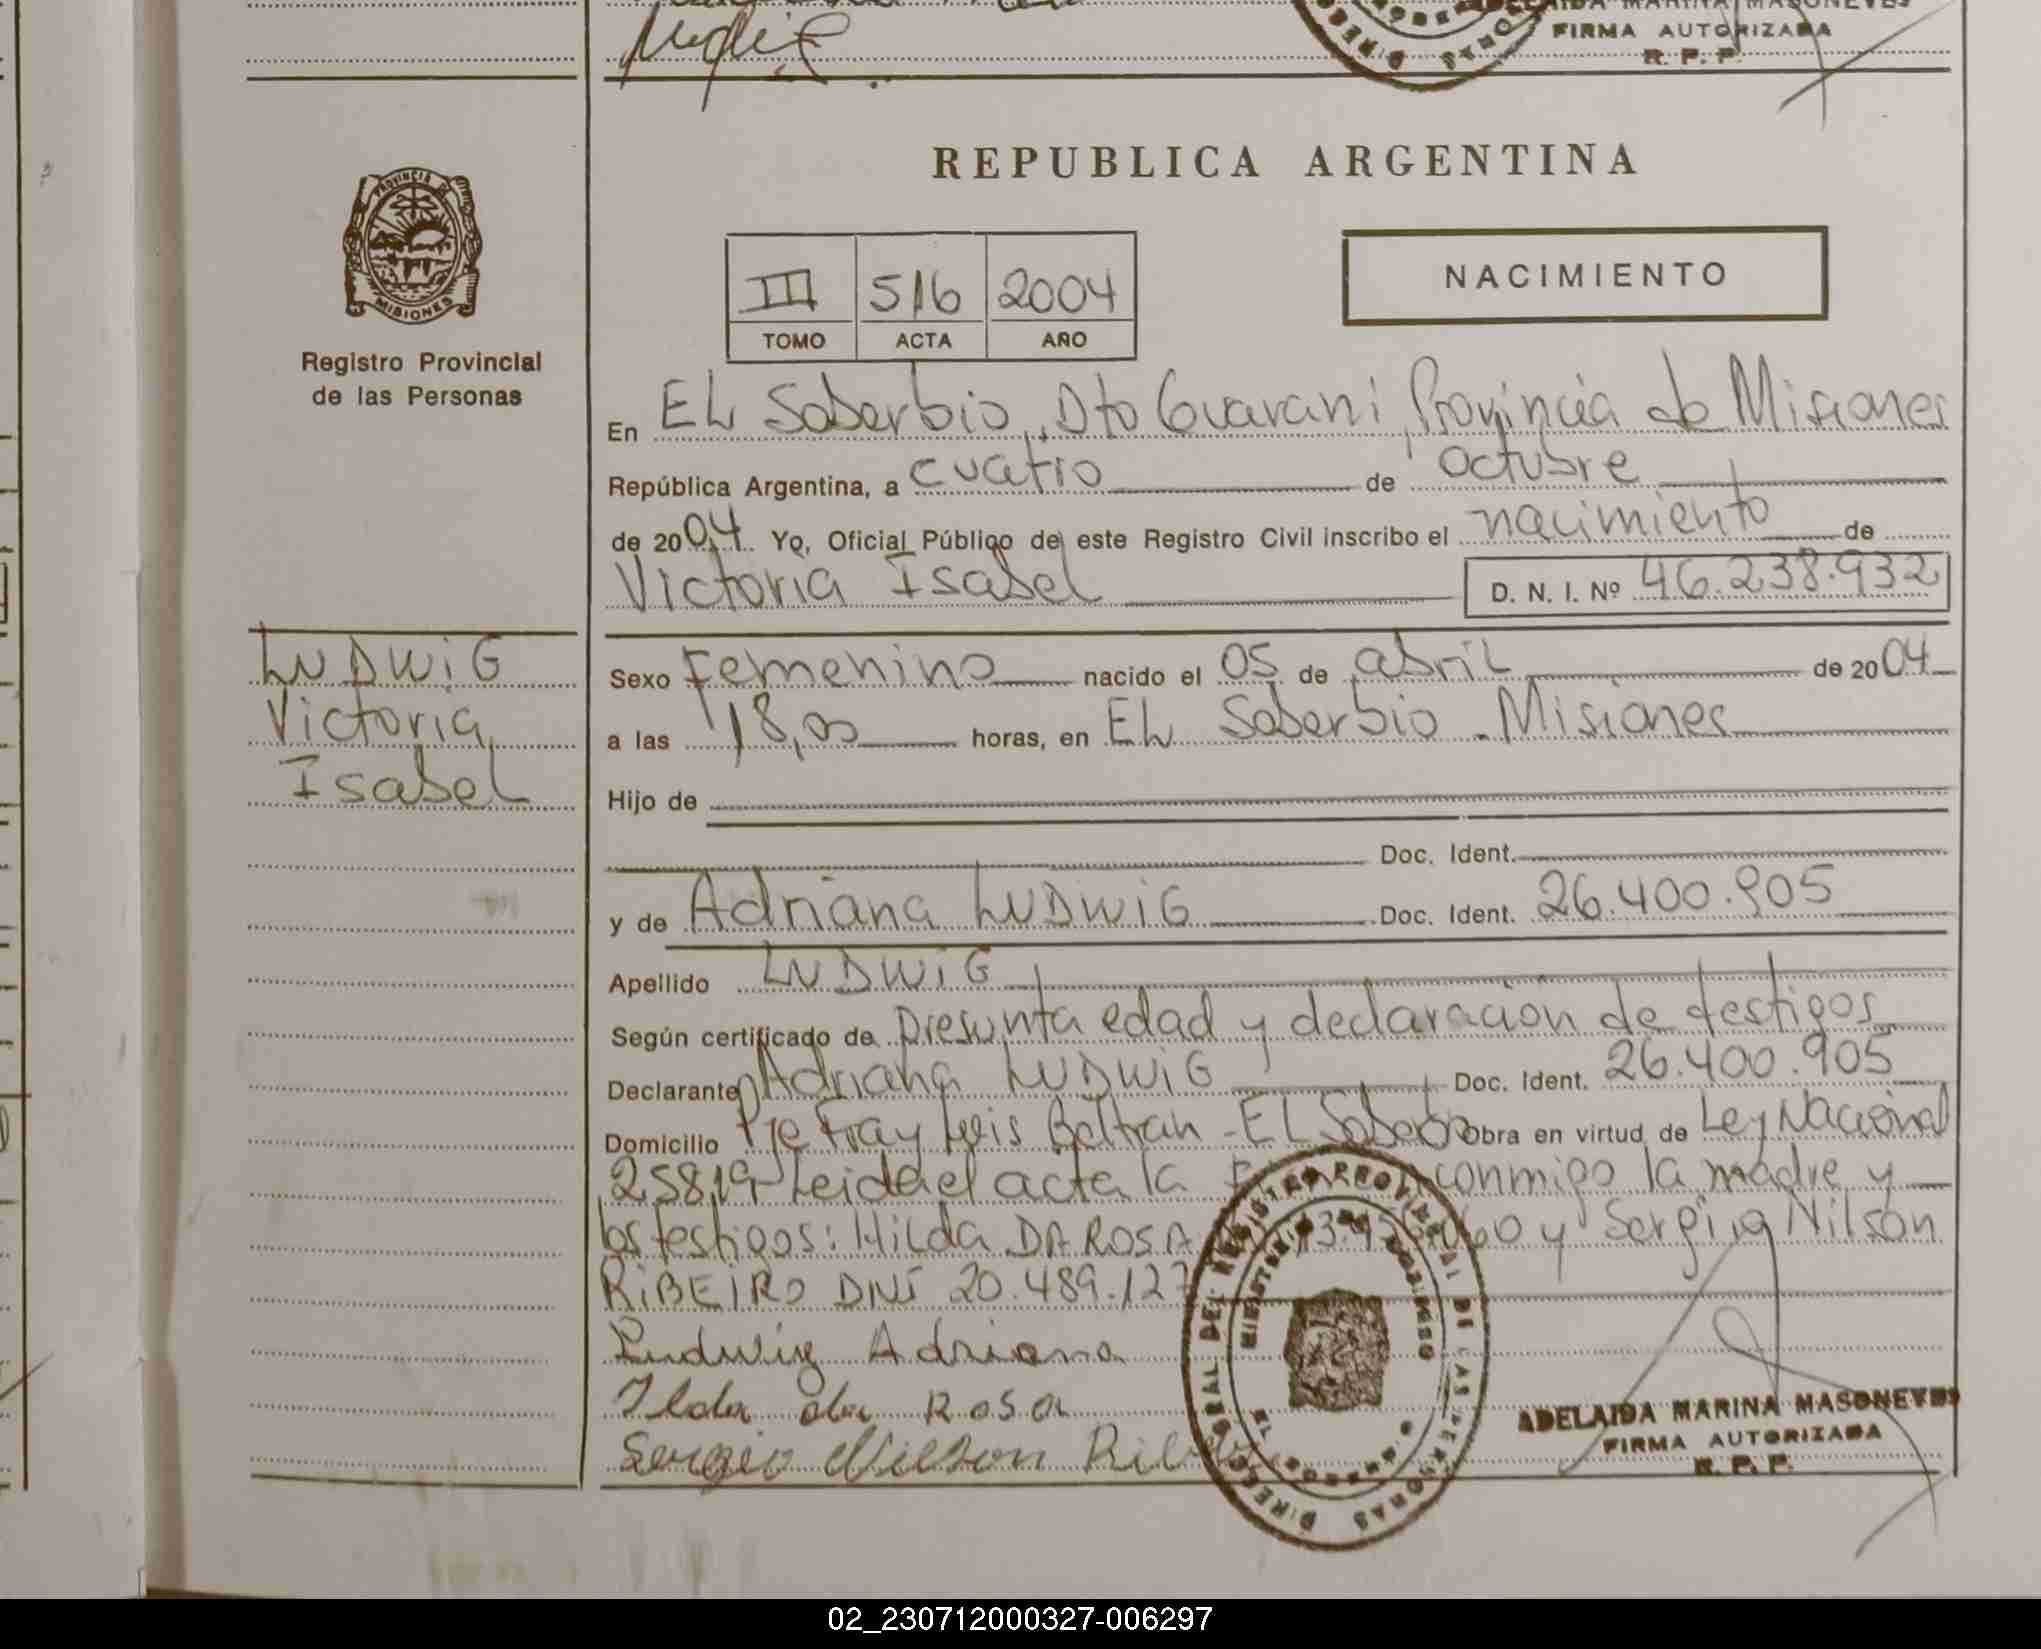 ADELAIDA MARINA MASONEVES
FIRMA AUTORIZADA
R. P. P.
REPUBLICA ARGENTINA
PROVINCIA DE
MISIONES
Registro Provincial
de las Personas
III 516 2004
TOMO ACTA AÑO
NACIMIENTO
En EL Soberbio, Dto Guarani, Provincia de Misiones
República Argentina, a cuatro de octubre
de 2004. Yo, Oficial Público de este Registro Civil inscribo el nacimiento de
Victoria Isabel D. N. I. Nº 46.238.932
LUDWiG
Victoria
Isabel
Sexo Femenino nacido el 05 de abril de 2004
a las 18,00 horas, en EL Soberbio - Misiones
Hijo de
Doc. Ident.
y de Adriana LUDWiG Doc. Ident. 26.400.905
Apellido LUDWiG
Según certificado de presunta edad y declaración de testigos
Declarante Adriana LUDWiG Doc. Ident. 26.400.905
Domicilio Pje Fray Luis Beltran - EL Soberbio Obra en virtud de Ley Nacional
25819 - Leida el acta la conmigo la madre y
los testigos: Hilda DA ROSA y Sergio Nilson
RiBEIRO DNI 20.489.127
Ludwig Adriana
Ilda da Rosa
Sergio Nilson
DIRECC GRAL DEL REGISTRO PROVINCIAL DE LAS PERSONAS
ADELAIDA MARINA MASONEVES
FIRMA AUTORIZADA
R. P. P.
02_230712000327-006297